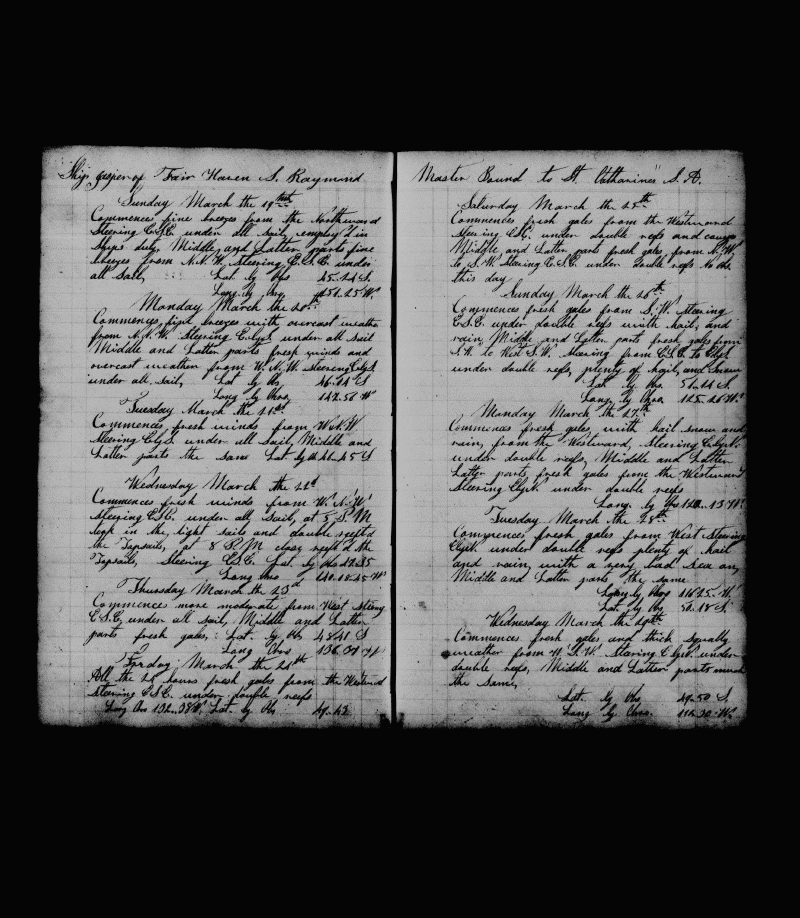 Ship Jasper of Fair Haven S. Raymond
Sunday March the 19th
Commences fine breezes from the Northward
Steering E.S.E. under all sail, employ'd in
Ships duty, Middle, and Latter parts fine
breezes from N.N.W. Steering E.S.E. under
all sail, Lat. by Obs 45.24 S.
Long. by Chro 151.25 W.
Monday March the 20th
Commences fine breezes with overcast weather
from N.N.W. Steering E.byS. under all sail
Middle and Latter parts fresh winds and
overcast weather from W.N.W. Steering E.byS
under all sail, Lat by Obs 46.04 S
Long by Chro 147.56 W
Tuesday March the 21st
Commences fresh winds from W.N.W
Steering E.byS. under all sail, Middle and
Latter parts the same Lat by
Wednesday March the 22d
Commences fresh winds from W.N.W
Steering E.S.E. under all sail, at 5 P.M
took in the light sails and double reef'd
the Topsails, at 8 P.M close reef'd the
Topsails, Steering E.S.E. Lat. by Obs
Long Chro 140.18.45 W
Thursday March the 23d
Commences more moderate from West Steering
E.S.E. under all sail, Middle and Latter
parts fresh gales, Lat. by Obs 48.41 S
Long Chro 136.31 W
Fryday March the 24th
All the 24 hours fresh gales from the Westward
Steering E.S.E. under double reefs
Long Chro Lat. by Obs 49.42
Master Bound to St. Catharines S.A.
Saturday March the 25th
Commences fresh gales from the Westward
Steering E.byS. under double reefs and courses
Middle and Latter parts fresh gales from N.W.
to S.W. Steering E.S.E. under double reefs No Obs
this day
Sunday March the 26th
Commences fresh gales from S.W. Steering
E.S.E. under double reefs with hail, and
rain, Middle and Latter parts fresh gales from
to West S.W. Steering from E.S.E. to E.byS
under double reefs, plenty of hail, and Snow
Lat by Obs 51.44 S
Long. by Chro 125.26 W.
Monday March the 27th
Commences fresh gales, with hail snow and
rain, from the Westward, Steering E.byN.
under double reefs, Middle and Latter
Latter parts, fresh gales from the Westward
Steering E.byN. under double reefs
Long by 120.13 W.
Tuesday March the 28th
Commences fresh gales from West Steering
E.byN. under double reefs plenty of hail
and rain, with a very bad sea on,
Middle and Latter parts the same
Long by Chro 116.25. W.
Lat by Obs 50.18 S.
Wednesday March the 29th
Commences fresh gales and thick squally
weather from W.S.W. Steering E.byN. under
double reefs, Middle and Latter parts much
the same,
Lat. by Obs 49.50 S
Long by Chro. 112.30 W.